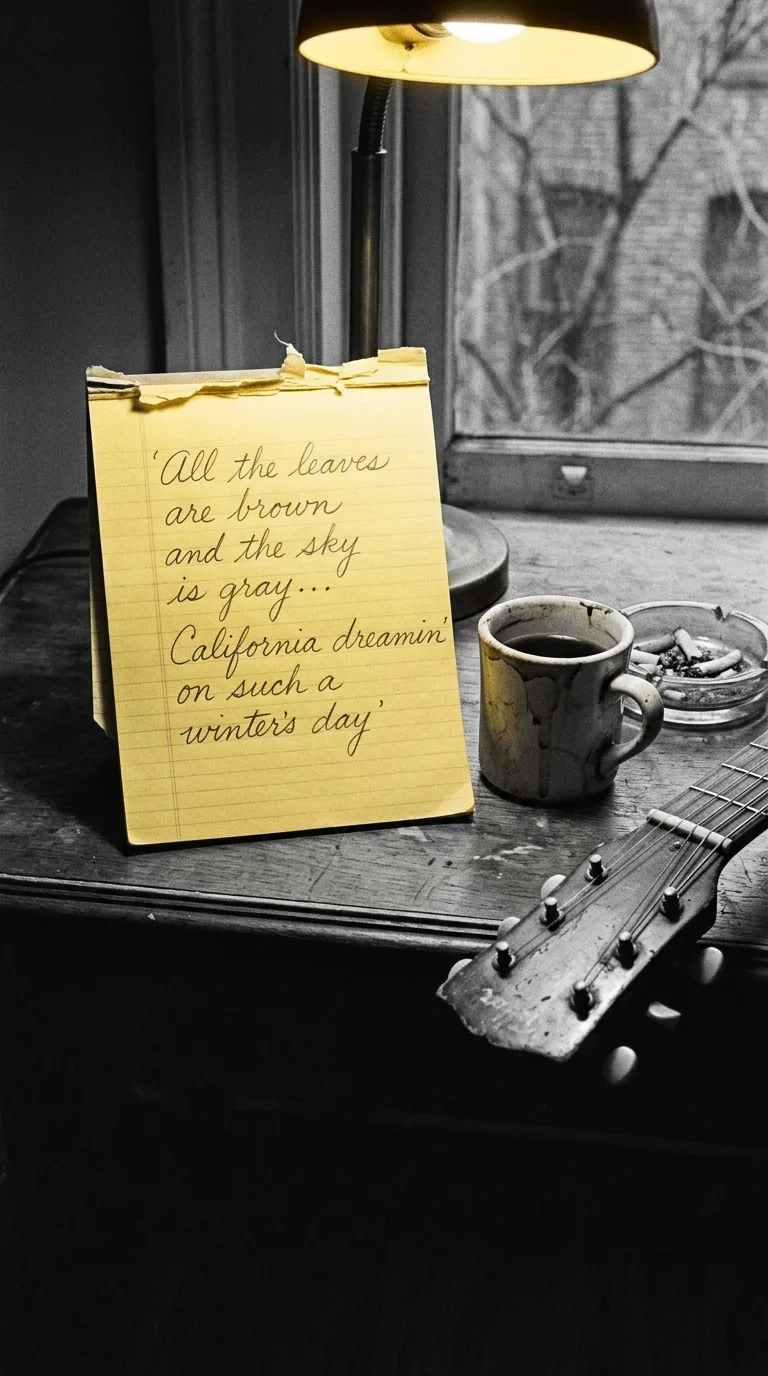 'All the leaves
are brown
and the sky
is gray...
California dreamin'
on such a
winter's day'